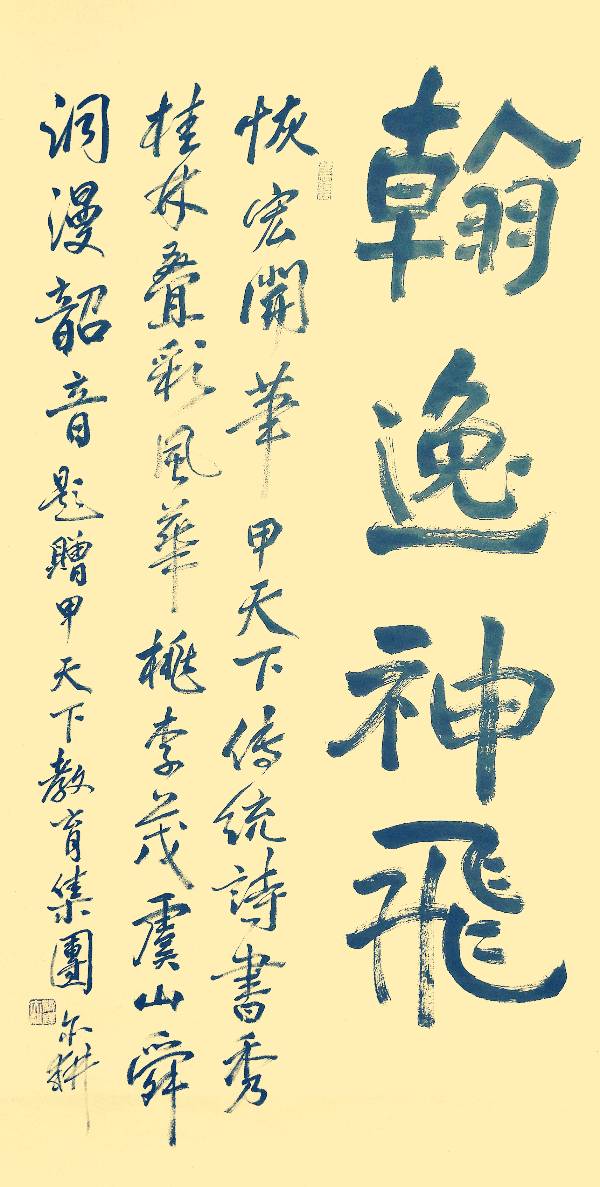 翰逸神飛
恢宏開華甲天下傳統詩書秀
桂林叠彩風華桃李茂虞山舜
洞漫韶音題贈甲天下教育集團尔耕